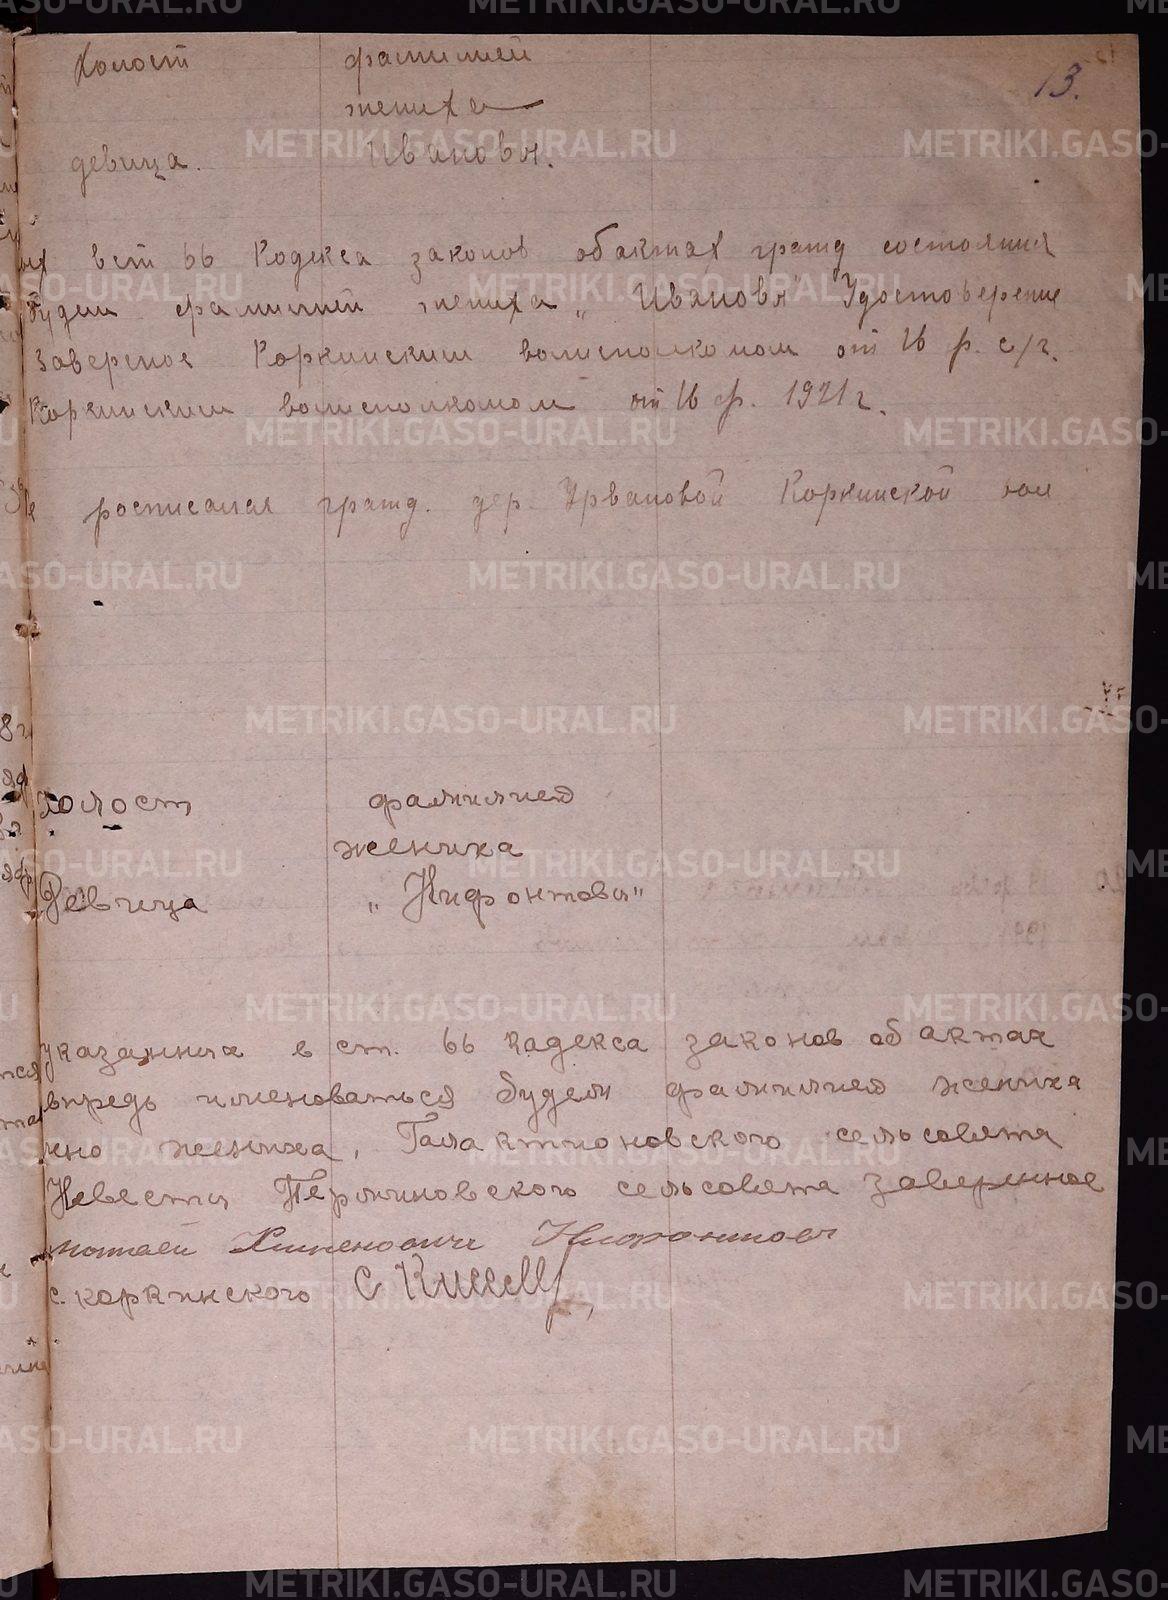 13.
Холост фамилией
жениха
девица. Ивановы.
ых в ст 66 Кодекса законов об актах гражд состояния
будем фамилией жениха „Ивановы" Удостоверение
Заверенное Коркинским волисполкомом от 16 ф. с/г.
Коркинским волисполкомом от 16 ф. 1921 г.
росписалая гражд. дер. Урвановой Коркинской вол
Холост фамилией
жениха
Девица „Нифонтовы"
указанных в ст. 66 кадекса законов об актах
впредь именоваться будем фамилией жениха
жениха, Галактионовского сельсовета
Невесты сельсовета заверенное
Нифонтов
с. коркинского С
METRIKI.GASO-URAL.RU